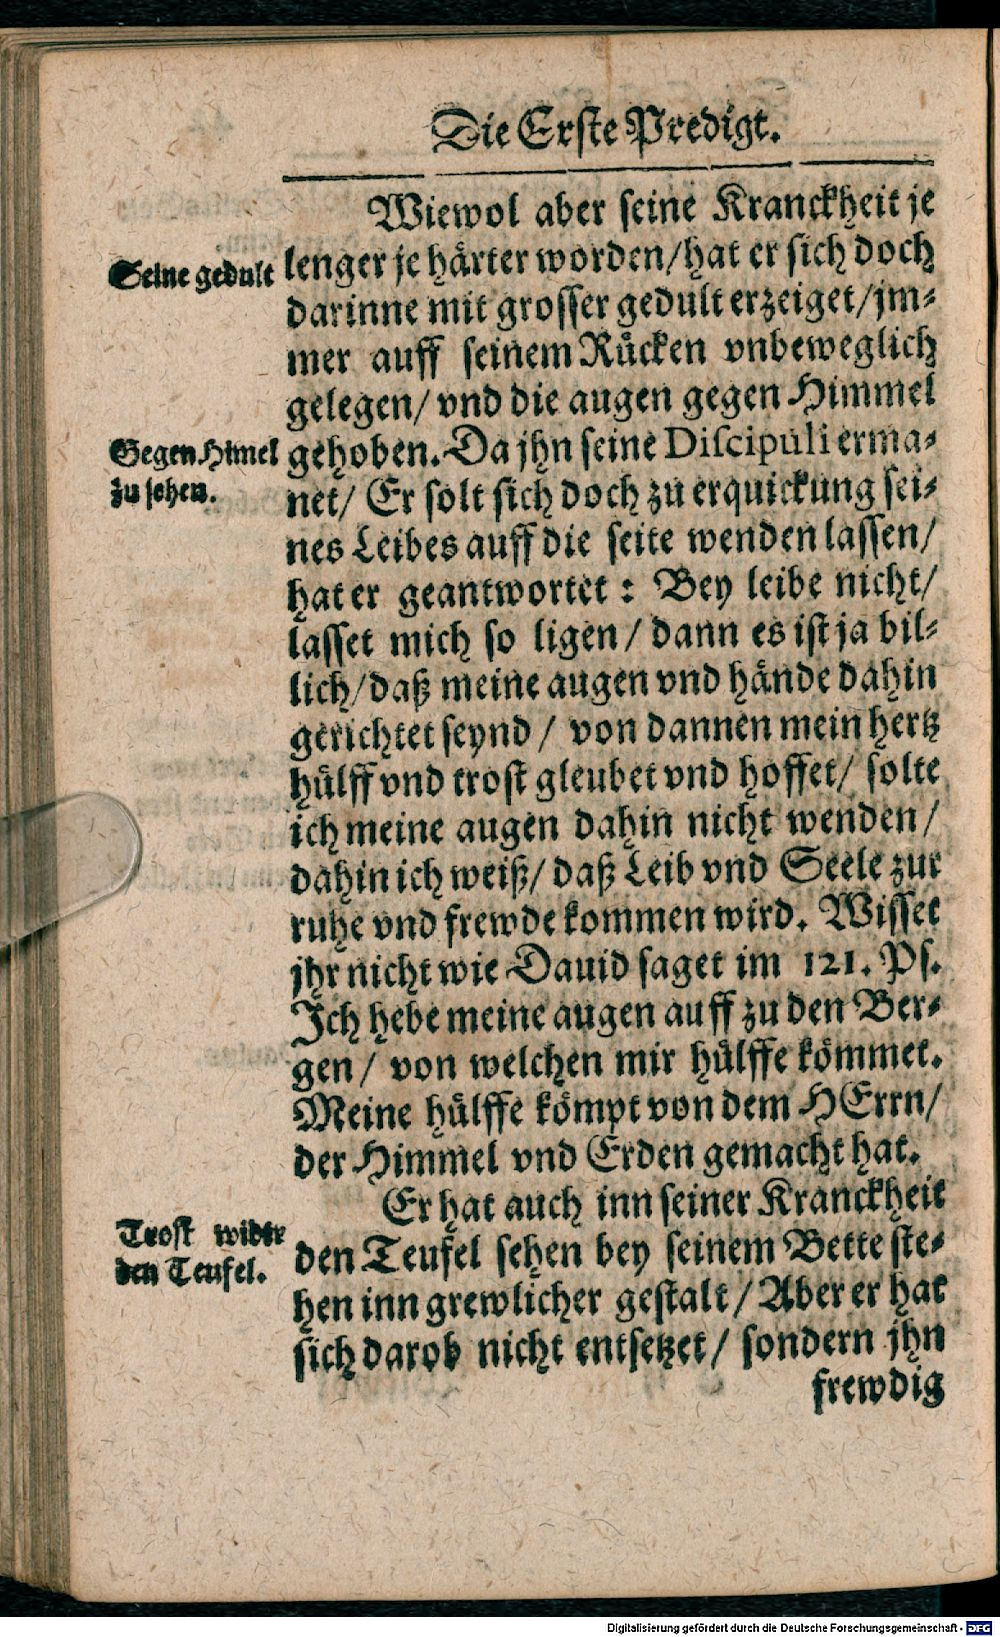 Die Erste Predigt.
Wiewol aber seine Kranckheit je
Seine gedult
lenger je härter worden/hat er sich doch
darinne mit grosser gedult erzeiget/jm-
mer auff seinem Rücken vnbeweglich
gelegen/ vnd die augen gegen Himmel
Gegen Himel
zu sehen.
gehoben. Da jhn seine Discipuli erma-
net/ Er solt sich doch zu erquickung sei-
nes Leibes auff die seite wenden lassen/
hat er geantwortet : Bey leibe nicht/
lasset mich so ligen/ dann es ist ja bil-
lich/daß meine augen vnd hände dahin
gerichtet seynd/ von dannen mein hertz
hülff vnd trost gleubet vnd hoffet/ solte
ich meine augen dahin nicht wenden/
dahin ich weiß/ daß Leib vnd Seele zur
ruhe vnd frewde kommen wird. Wisset
jhr nicht wie Dauid saget im 121. Ps.
Ich hebe meine augen auff zu den Ber-
gen/ von welchen mir hülffe kömmet.
Meine hülffe kömpt von dem HErrn/
der Himmel vnd Erden gemacht hat.
Er hat auch inn seiner Kranckheit
Trost wider
den Teufel.
den Teufel sehen bey seinem Bette ste-
hen inn grewlicher gestalt/ Aber er hat
sich darob nicht entsetzet/ sondern jhn
frewdig
Digitalisierung gefördert durch die Deutsche Forschungsgemeinschaft - DFG